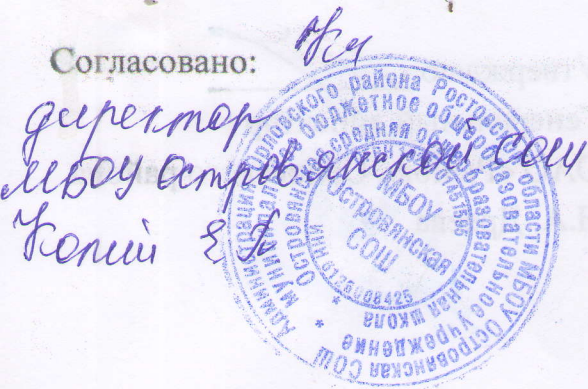 Согласовано:
директор
МБОУ Островянской СОШ
Копий Е П
Администрация Орловского района Ростовской области МБОУ Островянская СОШ
* муниципальное бюджетное общеобразовательное учреждение
Островянская средняя общеобразовательная школа *
МБОУ
Островянская
СОШ